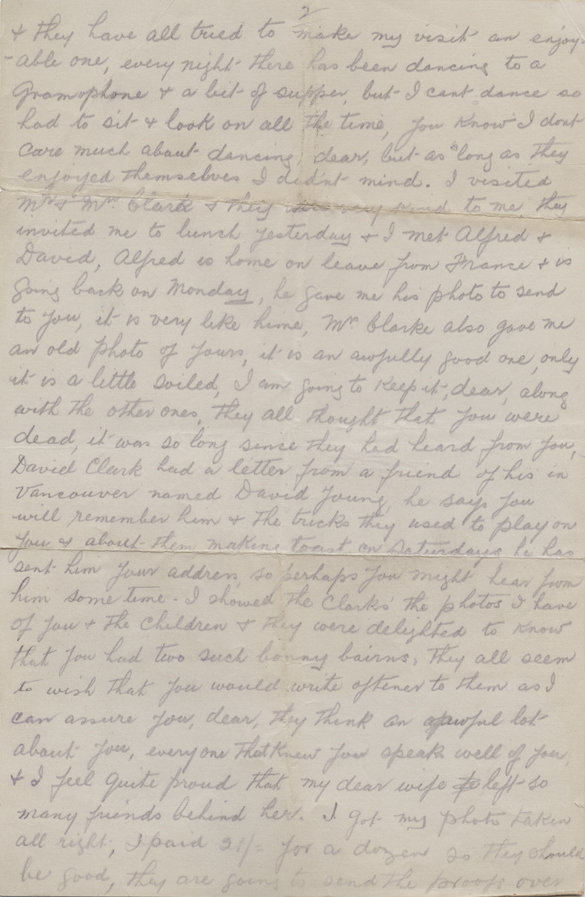 2
& they have all tried to make my visit an enjoy-
-able one, every night there has been dancing to a
Gramophone & a bit of supper, but I cant dance so
had to sit & look on all the time, you know I dont
care much about dancing, dear, but as long as they
enjoyed themselves I didnt mind. I visited
Mr & Mrs Clark & they were very kind to me, they
invited me to lunch yesterday & I met Alfred &
David, Alfred is home on leave from France & is
going back on Monday, he gave me his photo to send
to you, it is very like hime, Mr Clarke also gave me
an old photo of yours, it is an awfully good one, only
it is a little soiled, I am going to keep it, dear, along
with the other ones, they all thought that you were
dead, it was so long since they had heard from you,
David Clark had a letter from a friend of his in
Vancouver named David Young, he says you
will remember him & the tricks they used to play on
you & about them making toast on Saturdays, he has
sent him your address, so perhaps you might hear from
him some time. I showed the Clarks the photos I have
of you & the children & they were delighted to know
that you had two such bonny bairns, they all seem
to wish that you would write oftener to them as I
can assure you, dear, they think an awful lot
about you, everyone that knew you speak well of you,
& I feel quite proud that my dear wife left so
many friends behind her. I got my photo taken
all right, I paid 21/= for a dozen so they should
be good, they are going to send the proofs over